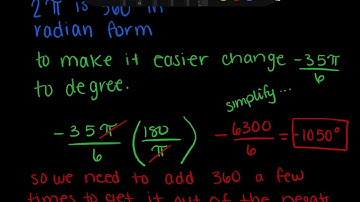 2π is 360 in
radian form
to make it easier change -35π/6
to degree.
simplify...
-35π/6 (180/π) -6300/6 = -1050°
so we need to add 360 a few
times to get it out of the negati